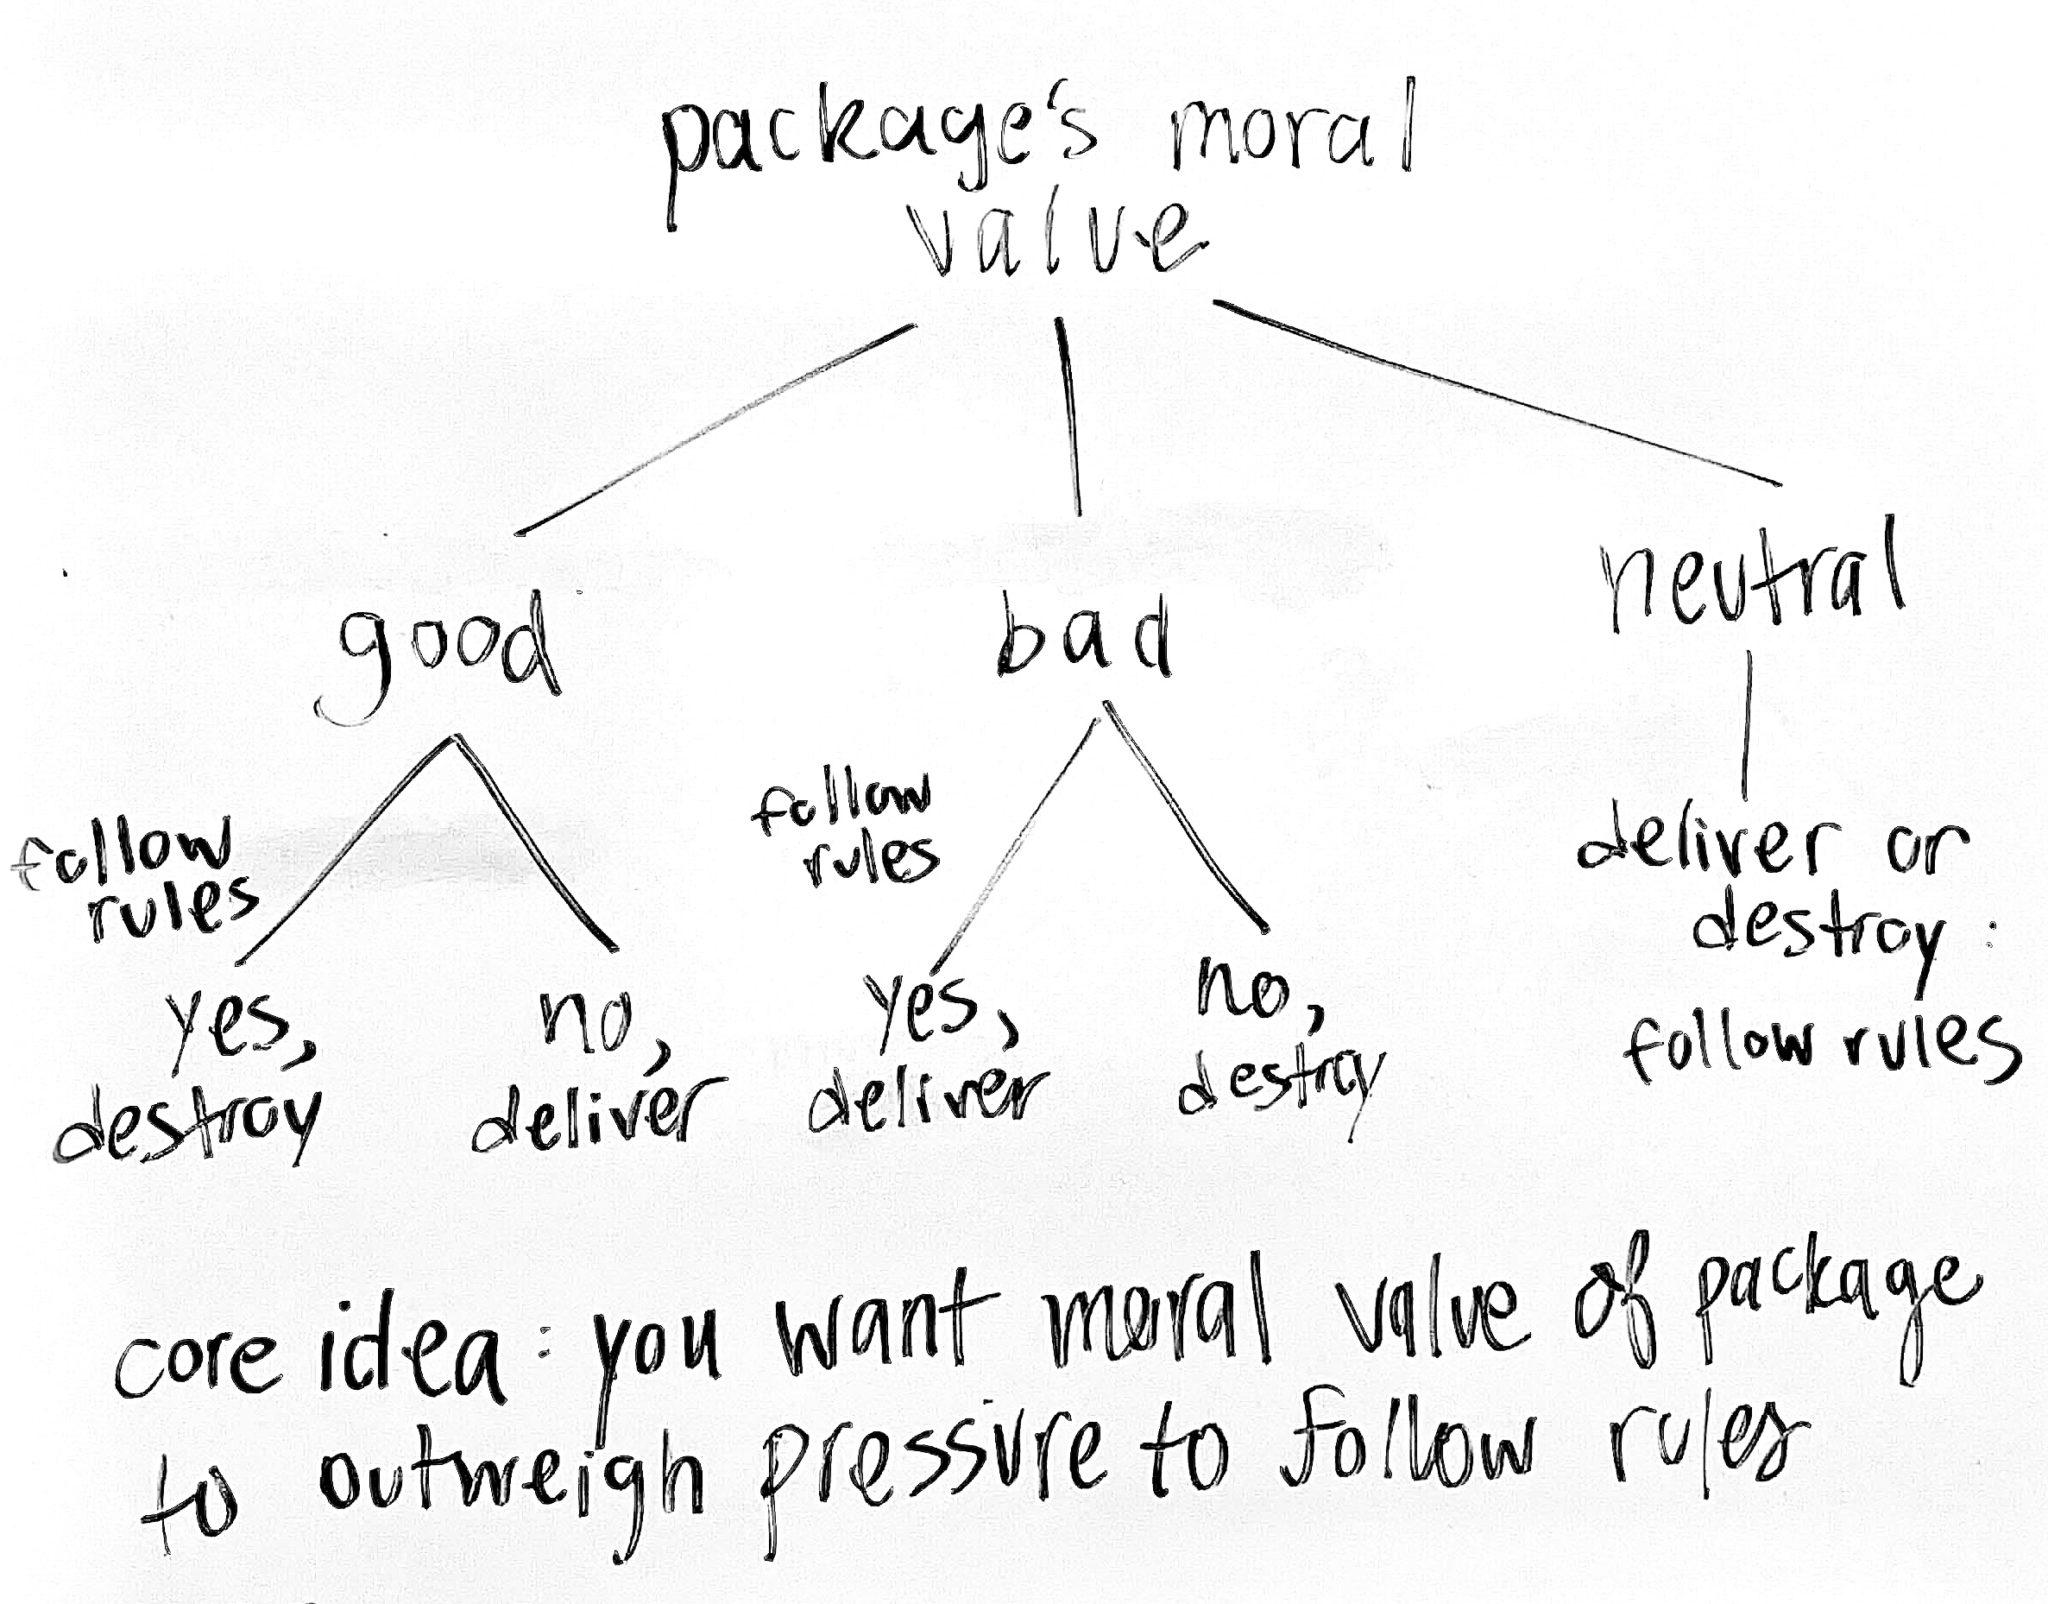 package's moral
value
good
bad
neutral
follow
rules
yes,
destroy
no,
deliver
follow
rules
yes,
deliver
no,
destroy
deliver or
destroy:
follow rules
core idea: you want moral value of package
to outweigh pressure to follow rules